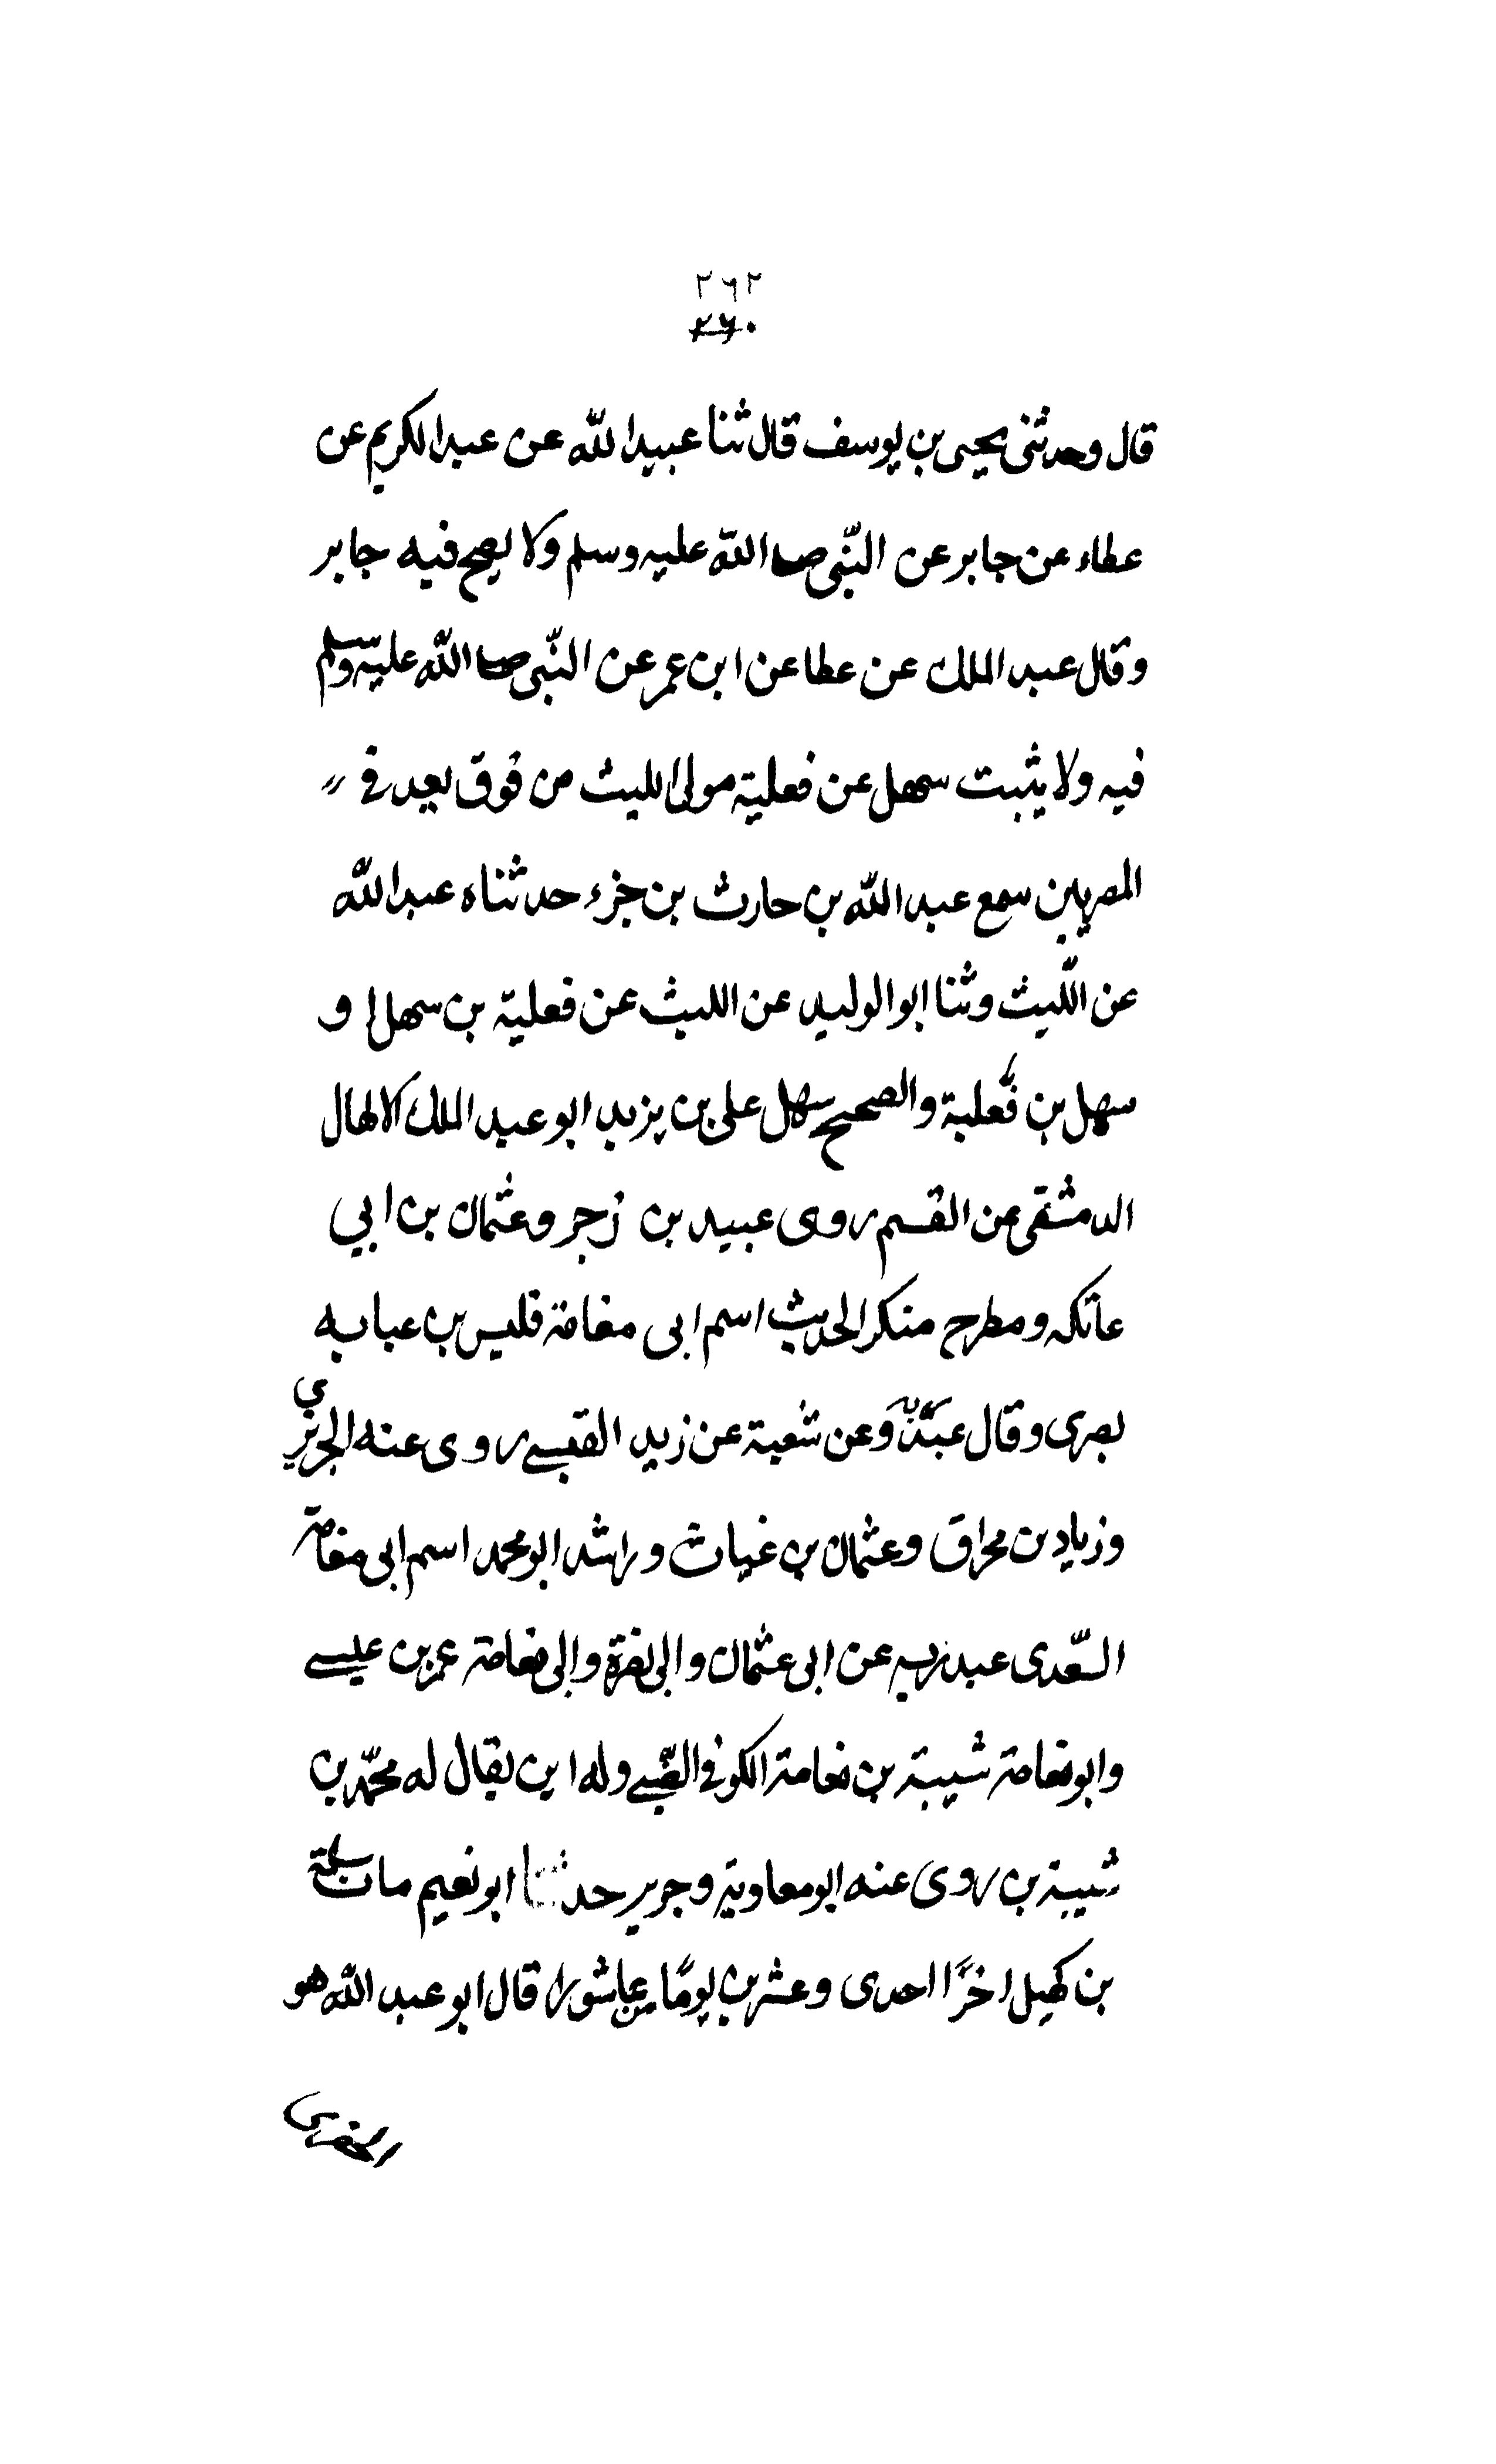 ٢٦٢
٢٦٠
قال وحدثنى يحيى بن يوسف قال ثنا عبيدالله عن عبدالكريم عن
عطاء عن جابر عن النّبى صلى الله عليه وسلم ولا يصح فيه جابر
وقال عبد الملك عن عطا عن ابن عمر عن النّبى صلى الله عليه وسلم
فيه ولا يثبت سهل عن فعلية مولى الليث من فوق بعد فى
المصريين سمع عبد الله بن حارث بن جزء حدثناه عبدالله
عن اللّيث وثنا ابوالوليد عن الليث عن فعلية بن سهل او
سهل بن ثعلبة والصحيح سهل على بن يزيد ابو عبد الملك الالهال
الدمشقى عن القسم روى عبيد بن زجر وعثمان بن ابي
عاتكه ومطرح منكر الحديث اسم ابى مغامة قليس بن عبابه
بصرى وقال عن شعبة عن زيد القيسے روى عنه الجريرى
وزياد بن محراق وعثمان بن غياث وراشد ابو محمد اسم ابى مغامة
السّعدى عبد ربه عن ابى عثمان وابى نضرة وابى نعامة عمر بن عيسے
وابو نعامة شيبة بن نعامة الكوفى الضّبے وله ابن يقال له محمّد بن
شيبة بن روى عنه ابو معاوية وجرير حدثنا ابو نعيم مات سلمة
بن كهيل اخرًا احدى وعشرين يومًا عاشورا قال ابو عبد الله هو